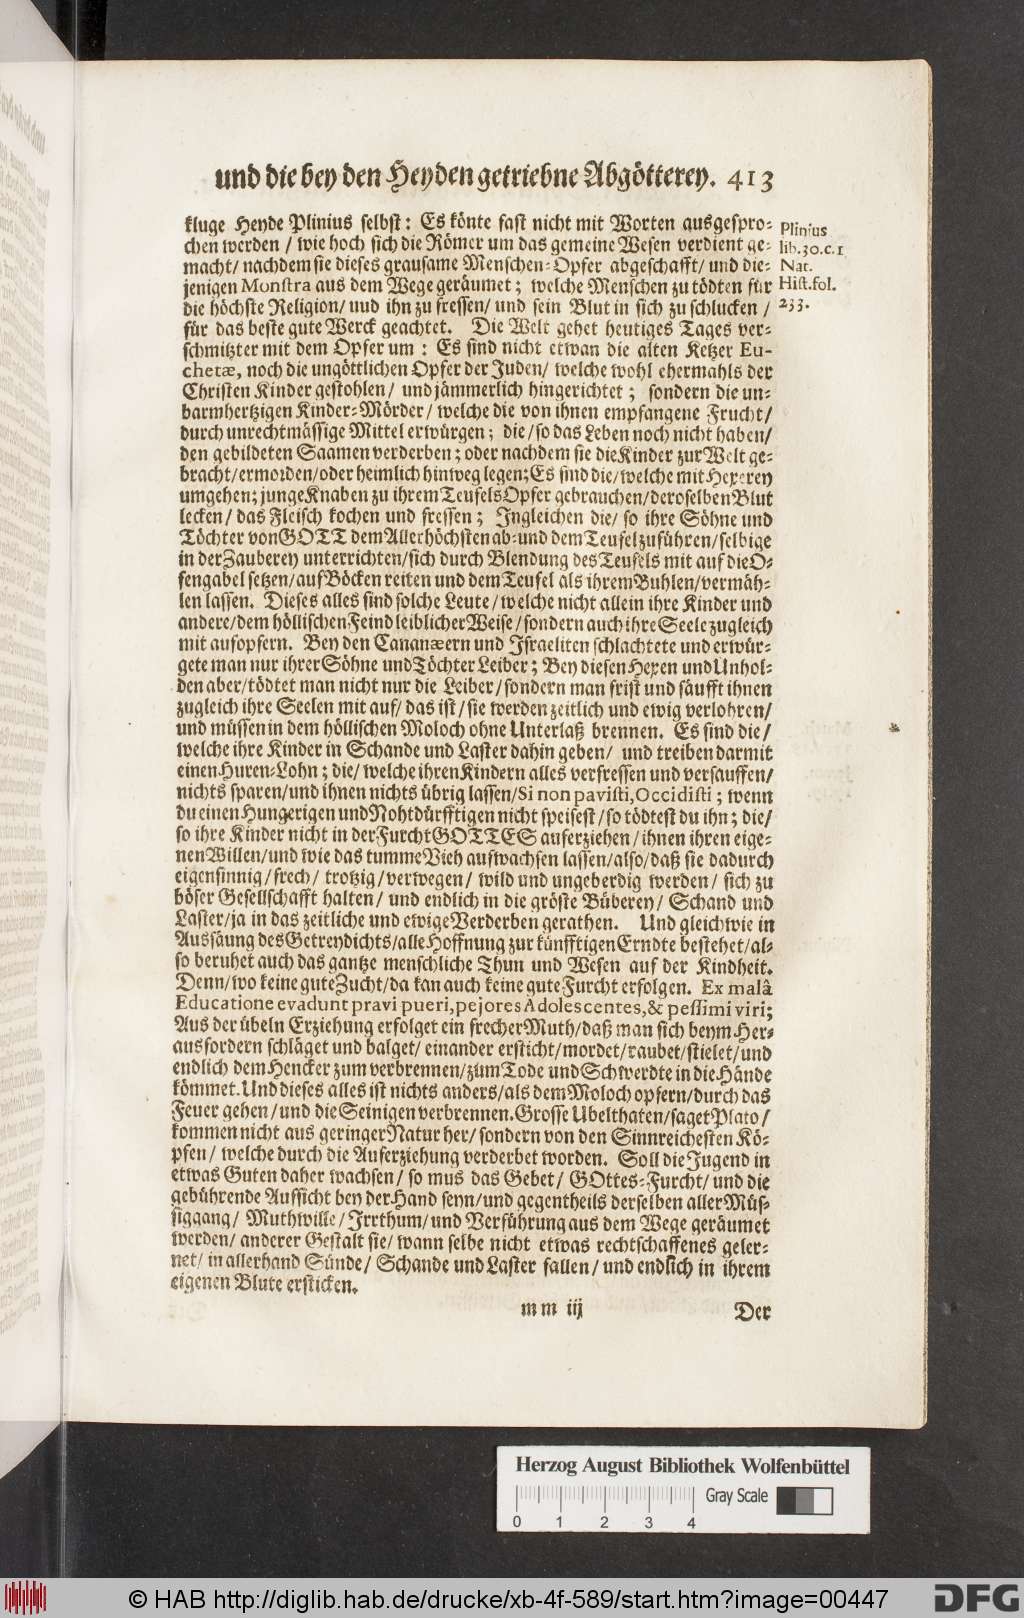 und die bey den Heyden getriebne Abgötterey. 413
kluge Heyde Plinius selbst: Es könte fast nicht mit Worten ausgespro-
chen werden / wie hoch sich die Römer um das gemeine Wesen verdient ge-
macht/ nachdem sie dieses grausame Menschen-Opfer abgeschafft/ und die-
jenigen Monstra aus dem Wege geräumet; welche Menschen zu tödten für
die höchste Religion/ uud ihn zu fressen/ und sein Blut in sich zu schlucken /
für das beste gute Werck geachtet. Die Welt gehet heutiges Tages ver-
schmitzter mit dem Opfer um: Es sind nicht etwan die alten Ketzer Eu-
chetæ, noch die ungöttlichen Opfer der Juden/ welche wohl ehermahls der
Christen Kinder gestohlen/ und jämmerlich hingerichtet; sondern die un-
barmhertzigen Kinder-Mörder/ welche die von ihnen empfangene Frucht/
durch unrechtmässige Mittel erwürgen; die/ so das Leben noch nicht haben/
den gebildeten Saamen verderben; oder nachdem sie die Kinder zur Welt ge-
bracht/ ermorden/ oder heimlich hinweg legen; Es sind die/ welche mit Hexerey
umgehen; junge Knaben zu ihrem Teufels Opfer gebrauchen/ deroselben Blut
lecken/ das Fleisch kochen und fressen; Ingleichen die/ so ihre Söhne und
Töchter von GOTT dem Allerhöchsten ab- und dem Teufel zuführen/ selbige
in der Zauberey unterrichten/ sich durch Blendung des Teufels mit auf die O-
fengabel setzen/ auf Böcken reiten und dem Teufel als ihrem Buhlen/ vermäh-
len lassen. Dieses alles sind solche Leute/ welche nicht allein ihre Kinder und
andere/ dem höllischen Feind leiblicher Weise/ sondern auch ihre Seele zugleich
mit aufopfern. Bey den Cananæern und Israeliten schlachtete und erwür-
gete man nur ihrer Söhne und Töchter Leiber; Bey diesen Hexen und Unhol-
den aber/ tödtet man nicht nur die Leiber/ sondern man frist und säufft ihnen
zugleich ihre Seelen mit auf/ das ist/ sie werden zeitlich und ewig verlohren/
und müssen in dem höllischen Moloch ohne Unterlaß brennen. Es sind die/
welche ihre Kinder in Schande und Laster dahin geben/ und treiben darmit
einen Huren-Lohn; die/ welche ihren Kindern alles verfressen und versauffen/
nichts sparen/ und ihnen nichts übrig lassen/ Si non pavisti, Occidisti; wenn
du einen Hungerigen und Nohtdürfftigen nicht speisest/ so tödtest du ihn; die/
so ihre Kinder nicht in der Furcht GOTTES auferziehen/ ihnen ihren eige-
nen Willen/ und wie das tumme Vieh aufwachsen lassen/ also/ daß sie dadurch
eigensinnig/ frech/ trotzig/ verwegen/ wild und ungeberdig werden/ sich zu
böser Gesellschafft halten/ und endlich in die gröste Büberey/ Schand und
Laster/ ja in das zeitliche und ewige Verderben gerathen. Und gleichwie in
Aussäung des Getreydichts/ alle Hoffnung zur künfftigen Erndte bestehet/ al-
so beruhet auch das gantze menschliche Thun und Wesen auf der Kindheit.
Denn/ wo keine gute Zucht/ da kan auch keine gute Furcht erfolgen. Ex malâ
Educatione evadunt pravi pueri, pejores Adolescentes, & pessimi viri;
Aus der übeln Erziehung erfolget ein frecher Muth/ daß man sich beym Her-
ausfordern schläget und balget/ einander ersticht/ mordet/ raubet/ stielet/ und
endlich dem Hencker zum verbrennen/ zum Tode und Schwerdte in die Hände
kömmet. Und dieses alles ist nichts anders/ als dem Moloch opfern/ durch das
Feuer gehen/ und die Seinigen verbrennen. Grosse Ubelthaten/ saget Plato/
kommen nicht aus geringer Natur her/ sondern von den Sinnreichesten Kö-
pfen/ welche durch die Auferziehung verderbet worden. Soll die Jugend in
etwas Guten daher wachsen/ so mus das Gebet/ GOttes-Furcht/ und die
gebührende Aufsicht bey der Hand seyn/ und gegentheils derselben aller Müs-
siggang/ Muthwille/ Irrthum/ und Verführung aus dem Wege geräumet
werden/ anderer Gestalt sie/ wann selbe nicht etwas rechtschaffenes geler-
net/ in allerhand Sünde/ Schande und Laster fallen/ und endlich in ihrem
eigenen Blute ersticken.
mm iij
Der
Plinius
lib.30.c.1
Nat.
Hist.fol.
233.
Herzog August Bibliothek Wolfenbüttel
Gray Scale
0 1 2 3 4
© HAB http://diglib.hab.de/drucke/xb-4f-589/start.htm?image=00447
DFG